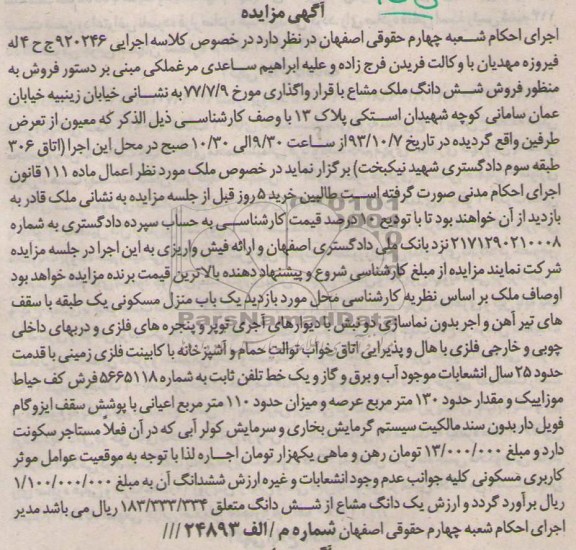 آگهی مزایده
اجرای احکام شعبه چهارم حقوقی اصفهان در نظر دارد در خصوص کلاسه اجرایی ۹۲۰۲۴۶ ج ح ۴ له
فیروزه مهدیان با وکالت فریدن فرج زاده و علیه ابراهیم ساعدی مرغملکی مبنی بر دستور فروش به
منظور فروش شش دانگ ملک مشاع با قرار واگذاری مورخ ۷۷/۷/۹ به نشانی خیابان زینبیه خیابان
عمان سامانی کوچه شهیدان استکی پلاک ۱۳ با وصف کارشناسی ذیل الذکر که معیون از تعرض
طرفین واقع گردیده در تاریخ ۹۳/۱۰/۷ از ساعت ۹/۳۰ الی ۱۰/۳۰ صبح در محل این اجرا (اتاق ۳۰۶
طبقه سوم دادگستری شهید نیکبخت) برگزار نماید در خصوص ملک مورد نظر اعمال ماده ۱۱۱ قانون
اجرای احکام مدنی صورت گرفته است طالبین خرید ۵ روز قبل از جلسه مزایده به نشانی ملک قادر به
بازدید از آن خواهند بود تا با تودیع ۱۰ درصد قیمت کارشناسی به حساب سپرده دادگستری به شماره
۲۱۷۱۲۹۰۲۱۰۰۰۸ نزد بانک ملی دادگستری اصفهان و ارائه فیش واریزی به این اجرا در جلسه مزایده
شرکت نمایند مزایده از مبلغ کارشناسی شروع و پیشنهاد دهنده بالاترین قیمت برنده مزایده خواهد بود
اوصاف ملک بر اساس نظریه کارشناسی محل مورد بازدید یک باب منزل مسکونی یک طبقه با سقف
های تیر آهن و اجر بدون نماسازی دو نبش با دیوارهای آجری توپر و پنجره های فلزی و دربهای داخلی
چوبی و خارجی فلزی با هال و پذیرایی اتاق خواب توالت حمام و آشپزخانه با کابینت فلزی زمینی با قدمت
حدود ۲۵ سال انشعابات موجود آب و برق و گاز و یک خط تلفن ثابت به شماره ۵۶۶۵۱۱۸ فرش کف حیاط
موزاییک و مقدار حدود ۱۳۰ متر مربع عرصه و میزان حدود ۱۱۰ متر مربع اعیانی با پوشش سقف ایزوگام
فویل دار بدون سند مالکیت سیستم گرمایش بخاری و سرمایش کولر آبی که در آن فعلا مستاجر سکونت
دارد و مبلغ ۱۳/۰۰۰/۰۰۰ تومان رهن و ماهی یکهزار تومان اجاره لذا با توجه به موقعیت عوامل موثر
کاربری مسکونی کلیه جوانب عدم وجود انشعابات و غیره ارزش ششدانگ آن به مبلغ ۱/۱۰۰/۰۰۰/۰۰۰
ریال برآورد گردد و ارزش یک دانگ مشاع از شش دانگ متعلق ۱۸۳/۳۳۳/۳۳۴ ریال می باشد مدیر
اجرای احکام شعبه چهارم حقوقی اصفهان شماره م / الف ۲۴۸۹۳ ///
ParsNamadData